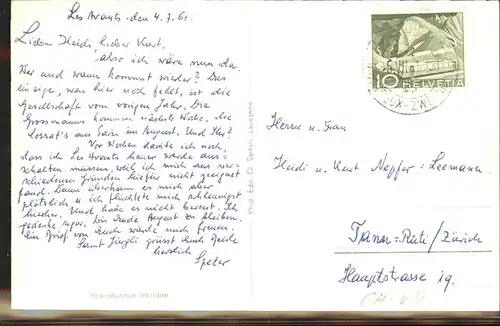 Les Avants, den 4.7.61.
Liebe Heidi, lieber Kurt,
also ich wäre nun da.
Wer und wann kommt wieder? Das
einzige, was hier noch fehlt, ist die
Gesellschaft vom vorigen Jahr. Die
Grossmanns kommen nächste Woche, die
aus Paris im August. Und Ihr?
Vor Wochen dachte ich noch,
dass ich Les Avants heuer werde aus-
schalten müssen, weil ich mich aus ver-
schiedenen Gründen hiefür nicht geeignet
fand. Dann überkam es mich aber
plötzlich u. ich flüchtete mich schleunigst
hieher. Und habe es nicht bereut. Ich
gedenke sogar, bis Ende August zu bleiben.
Ein Brief von Euch würde mich freuen.
Samt grüsst Euch Beide
herzlich
Peter
HELVETIA
10
Phot. Edit. O. Sartori, Lausanne
Herrn u. Frau
Heidi u. Kurt Nepfer-Leemann
Tann-Rüti/Zürich
Hauptstrasse 19.
Reproduction interdite